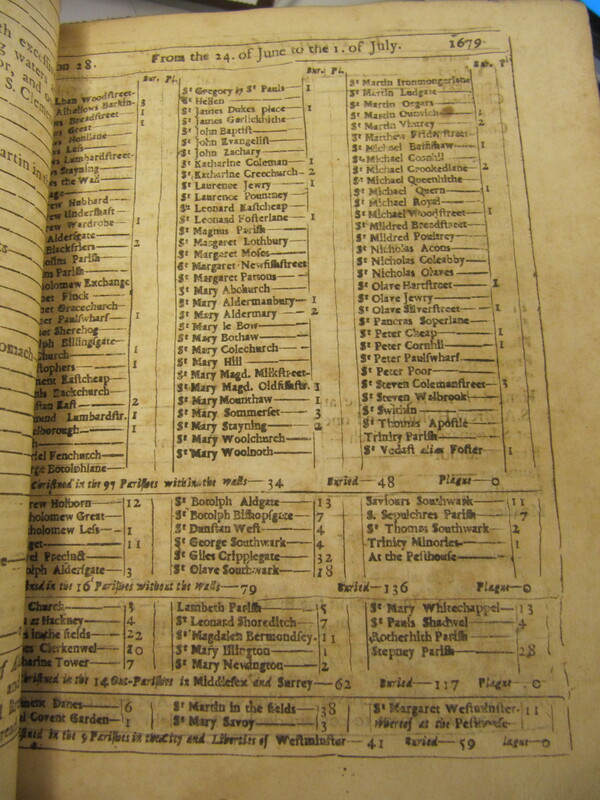 on 28. From the 24. of June to the 1. of July. 1679
Bur. Pl.
Bur. Pl.
Bur. Pl.
lban Woodſtreet-
Alhallows Barkin- 3
Breadſtreet 1
Great
Honilane
Leſs
Lumbardſtreet-
Stayning
the Wall
rew Hubbard
Underſhaft
rew Wardrobe 1
Alderſgate
Blackfriers 2
Pariſh
olomew Exchange
Finck
Gracechurch
Paulſwharf 1
Sherehog
lph Billingſgate
Church 1
ſtophers 1
ment Eaſtcheap
Backchurch
ſtan Eaſt 2
mund Lumbardſtr. 1
elborough 1
iel Fenchurch
rge Botolphlane
St Gregory by St Pauls 1
St Hellen
St James Dukes place 1
St James Garlickhithe
St John Baptiſt
St John Evangeliſt
St John Zachary
St Katharine Coleman 1
St Katharine Creechurch 2
St Laurence Jewry 1
St Laurence Pountney
St Leonard Eaſtcheap
St Leonard Foſterlane 1
St Magnus Pariſh
St Margaret Lothbury
St Margaret Moſes
St Margaret Newfiſhſtreet
St Margaret Pattons
St Mary Abchurch
St Mary Aldermanbury 1
St Mary Aldermary 2
St Mary le Bow
St Mary Bothaw
St Mary Colechurch
St Mary Hill
St Mary Magd. Milkſtreet
St Mary Magd. Oldfiſhſtr. 1
St Mary Mounthaw 1
St Mary Sommerſet 3
St Mary Stayning 2
St Mary Woolchurch
St Mary Woolnoth
St Martin Ironmongerlane
St Martin Ludgate
St Martin Orgars
St Martin Outwich 1
St Martin Vintrey 2
St Matthew Fridayſtreet
St Michael Baſſiſhaw 1
St Michael Cornhil
St Michael Crookedlane 2
St Michael Queenhithe
St Michael Quern 1
St Michael Royal
St Michael Woodſtreet 1
St Mildred Breadſtreet
St Mildred Poultrey
St Nicholas Acons
St Nicholas Coleabby
St Nicholas Olaves
St Olave Hartſtreet 1
St Olave Jewry
St Olave Silverſtreet 1
St Pancras Soperlane
St Peter Cheap 1
St Peter Cornhil 1
St Peter Paulſwharf
St Peter Poor
St Steven Colemanſtreet 3
St Steven Walbrook
St Swithin
St Thomas Apoſtle
Trinity Pariſh
St Vedaſt alias Foſter 1
Chriſtned in the 97 Pariſhes within the walls 34 Buried 48 Plague 0
rew Holborn 12
tholomew Great
holomew Leſs 1
11
el Precinct
olph Alderſgate 3
St Botolph Aldgate 13
St Botolph Biſhopſgate 7
St Dunſtan Weſt 4
St George Southwark 4
St Giles Cripplegate 32
St Olave Southwark 18
Saviours Southwark 11
S. Sepulchres Pariſh 7
St Thomas Southwark 2
Trinity Minories 1
At the Peſthouſe
in the 16 Pariſhes without the walls 79 Buried 136 Plague 0
Church 3
at Hackney 4
in the fields 22
Clerkenwel 20
harine Tower 7
Lambeth Pariſh 5
St Leonard Shoreditch 7
St Magdalen Bermondſey 11
St Mary Iſlington 1
St Mary Newington 2
St Mary Whitechappel 13
St Pauls Shadwel 4
Rotherhith Pariſh
Stepney Pariſh 28
Chriſtned in the 14 Out-Pariſhes in Middleſex and Surrey 62 Buried 117 Plague 0
ment Danes 6
Covent Garden 1
St Martin in the fields 38
St Mary Savoy 3
St Margaret Weſtminſter 11
Whereof at the Peſthouſe
in the 5 Pariſhes in the City and Liberties of Weſtminſter 41 Buried 59 lague 0